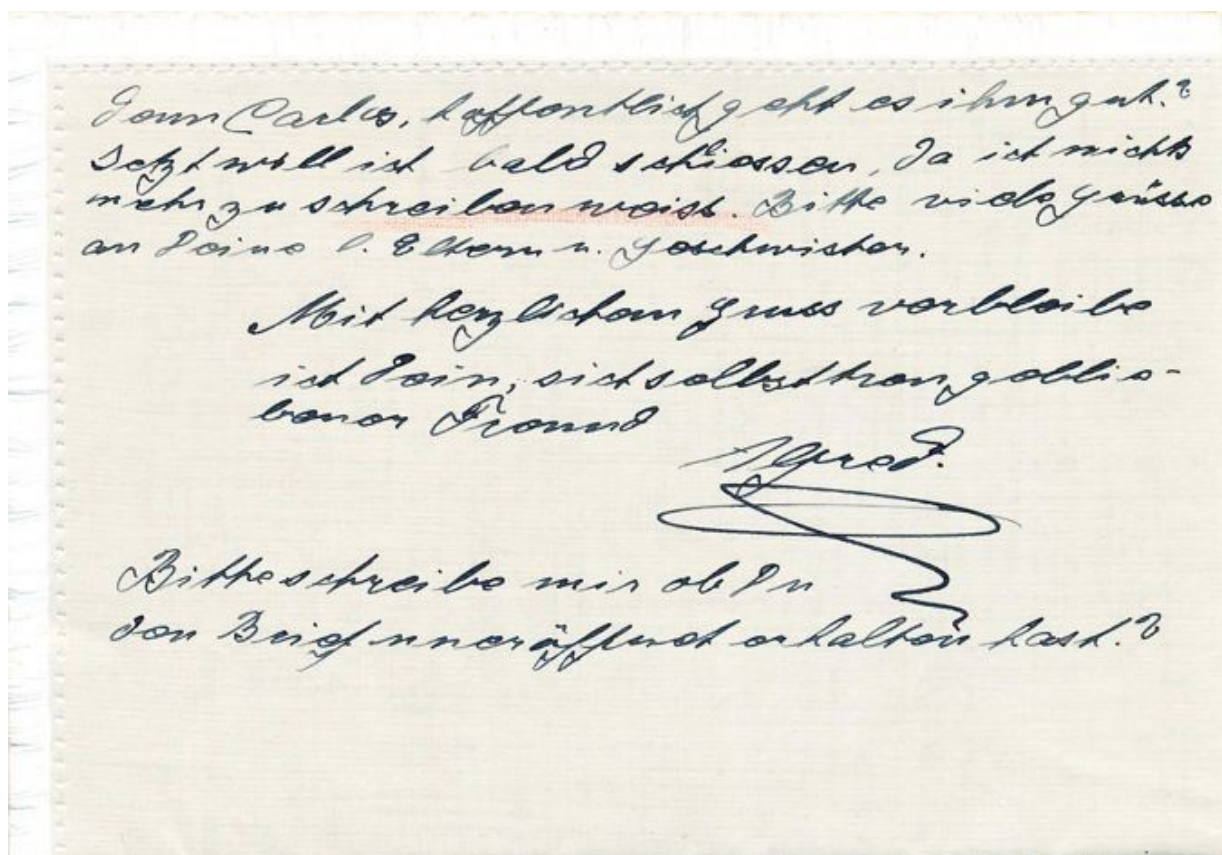 dem Carlos, hoffentlich geht es ihm gut.?
Jetzt will ich bald schiessen, da ich nichts
mehr zu schreiben weiss. Bitte viele Grüsse
an Deine l. Eltern u. Geschwister.
Mit herzlichem Gruss verbleibe
ich Dein, sich selbst treu geblie-
bener Freund
Alfred.
Bitte schreibe mir ob Du
den Brief uneröffnet erhalten hast.?